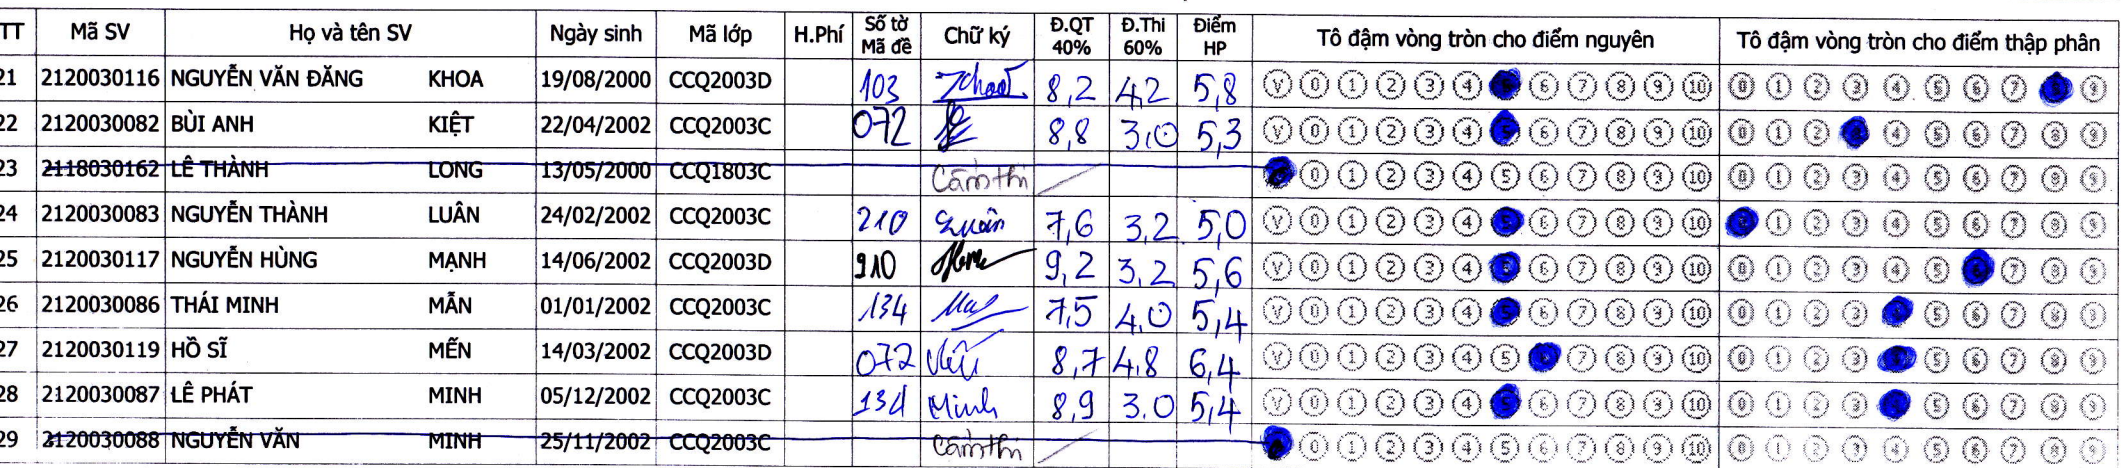 TT Mã SV Họ và tên SV Ngày sinh Mã lớp H.Phí Số tờ Mã đề Chữ ký Đ.QT 40% Đ.Thi 60% Điểm HP Tô đậm vòng tròn cho điểm nguyên Tô đậm vòng tròn cho điểm thập phân
21 2120030116 NGUYỄN VĂN ĐĂNG KHOA 19/08/2000 CCQ2003D 103 8,2 4,2 5,8 V 0 1 2 3 4 6 7 8 9 10 0 1 2 3 4 5 6 7 9
22 2120030082 BÙI ANH KIỆT 22/04/2002 CCQ2003C 072 8,8 3,0 5,3 V 0 1 2 3 4 6 7 8 9 10 0 1 2 4 5 6 7 8 9
23 2118030162 LÊ THÀNH LONG 13/05/2000 CCQ1803C Cấm thi 0 1 2 3 4 5 6 7 8 9 10 0 1 2 3 4 5 6 7 8 9
24 2120030083 NGUYỄN THÀNH LUÂN 24/02/2002 CCQ2003C 210 Luân 7,6 3,2 5,0 V 0 1 2 3 4 6 7 8 9 10 1 2 3 4 5 6 7 8 9
25 2120030117 NGUYỄN HÙNG MẠNH 14/06/2002 CCQ2003D 910 9,2 3,2 5,6 V 0 1 2 3 4 6 7 8 9 10 0 1 2 3 4 5 7 8 9
26 2120030086 THÁI MINH MẪN 01/01/2002 CCQ2003C 134 7,5 4,0 5,4 V 0 1 2 3 4 6 7 8 9 10 0 1 2 3 5 6 7 8 9
27 2120030119 HỒ SĨ MẾN 14/03/2002 CCQ2003D 072 8,7 4,8 6,4 V 0 1 2 3 4 5 7 8 9 10 0 1 2 3 5 6 7 8 9
28 2120030087 LÊ PHÁT MINH 05/12/2002 CCQ2003C 134 Minh 8,9 3,0 5,4 V 0 1 2 3 4 6 7 8 9 10 0 1 2 3 5 6 7 8 9
29 2120030088 NGUYỄN VĂN MINH 25/11/2002 CCQ2003C Cấm thi 0 1 2 3 4 5 6 7 8 9 10 0 1 2 3 4 5 6 7 8 9